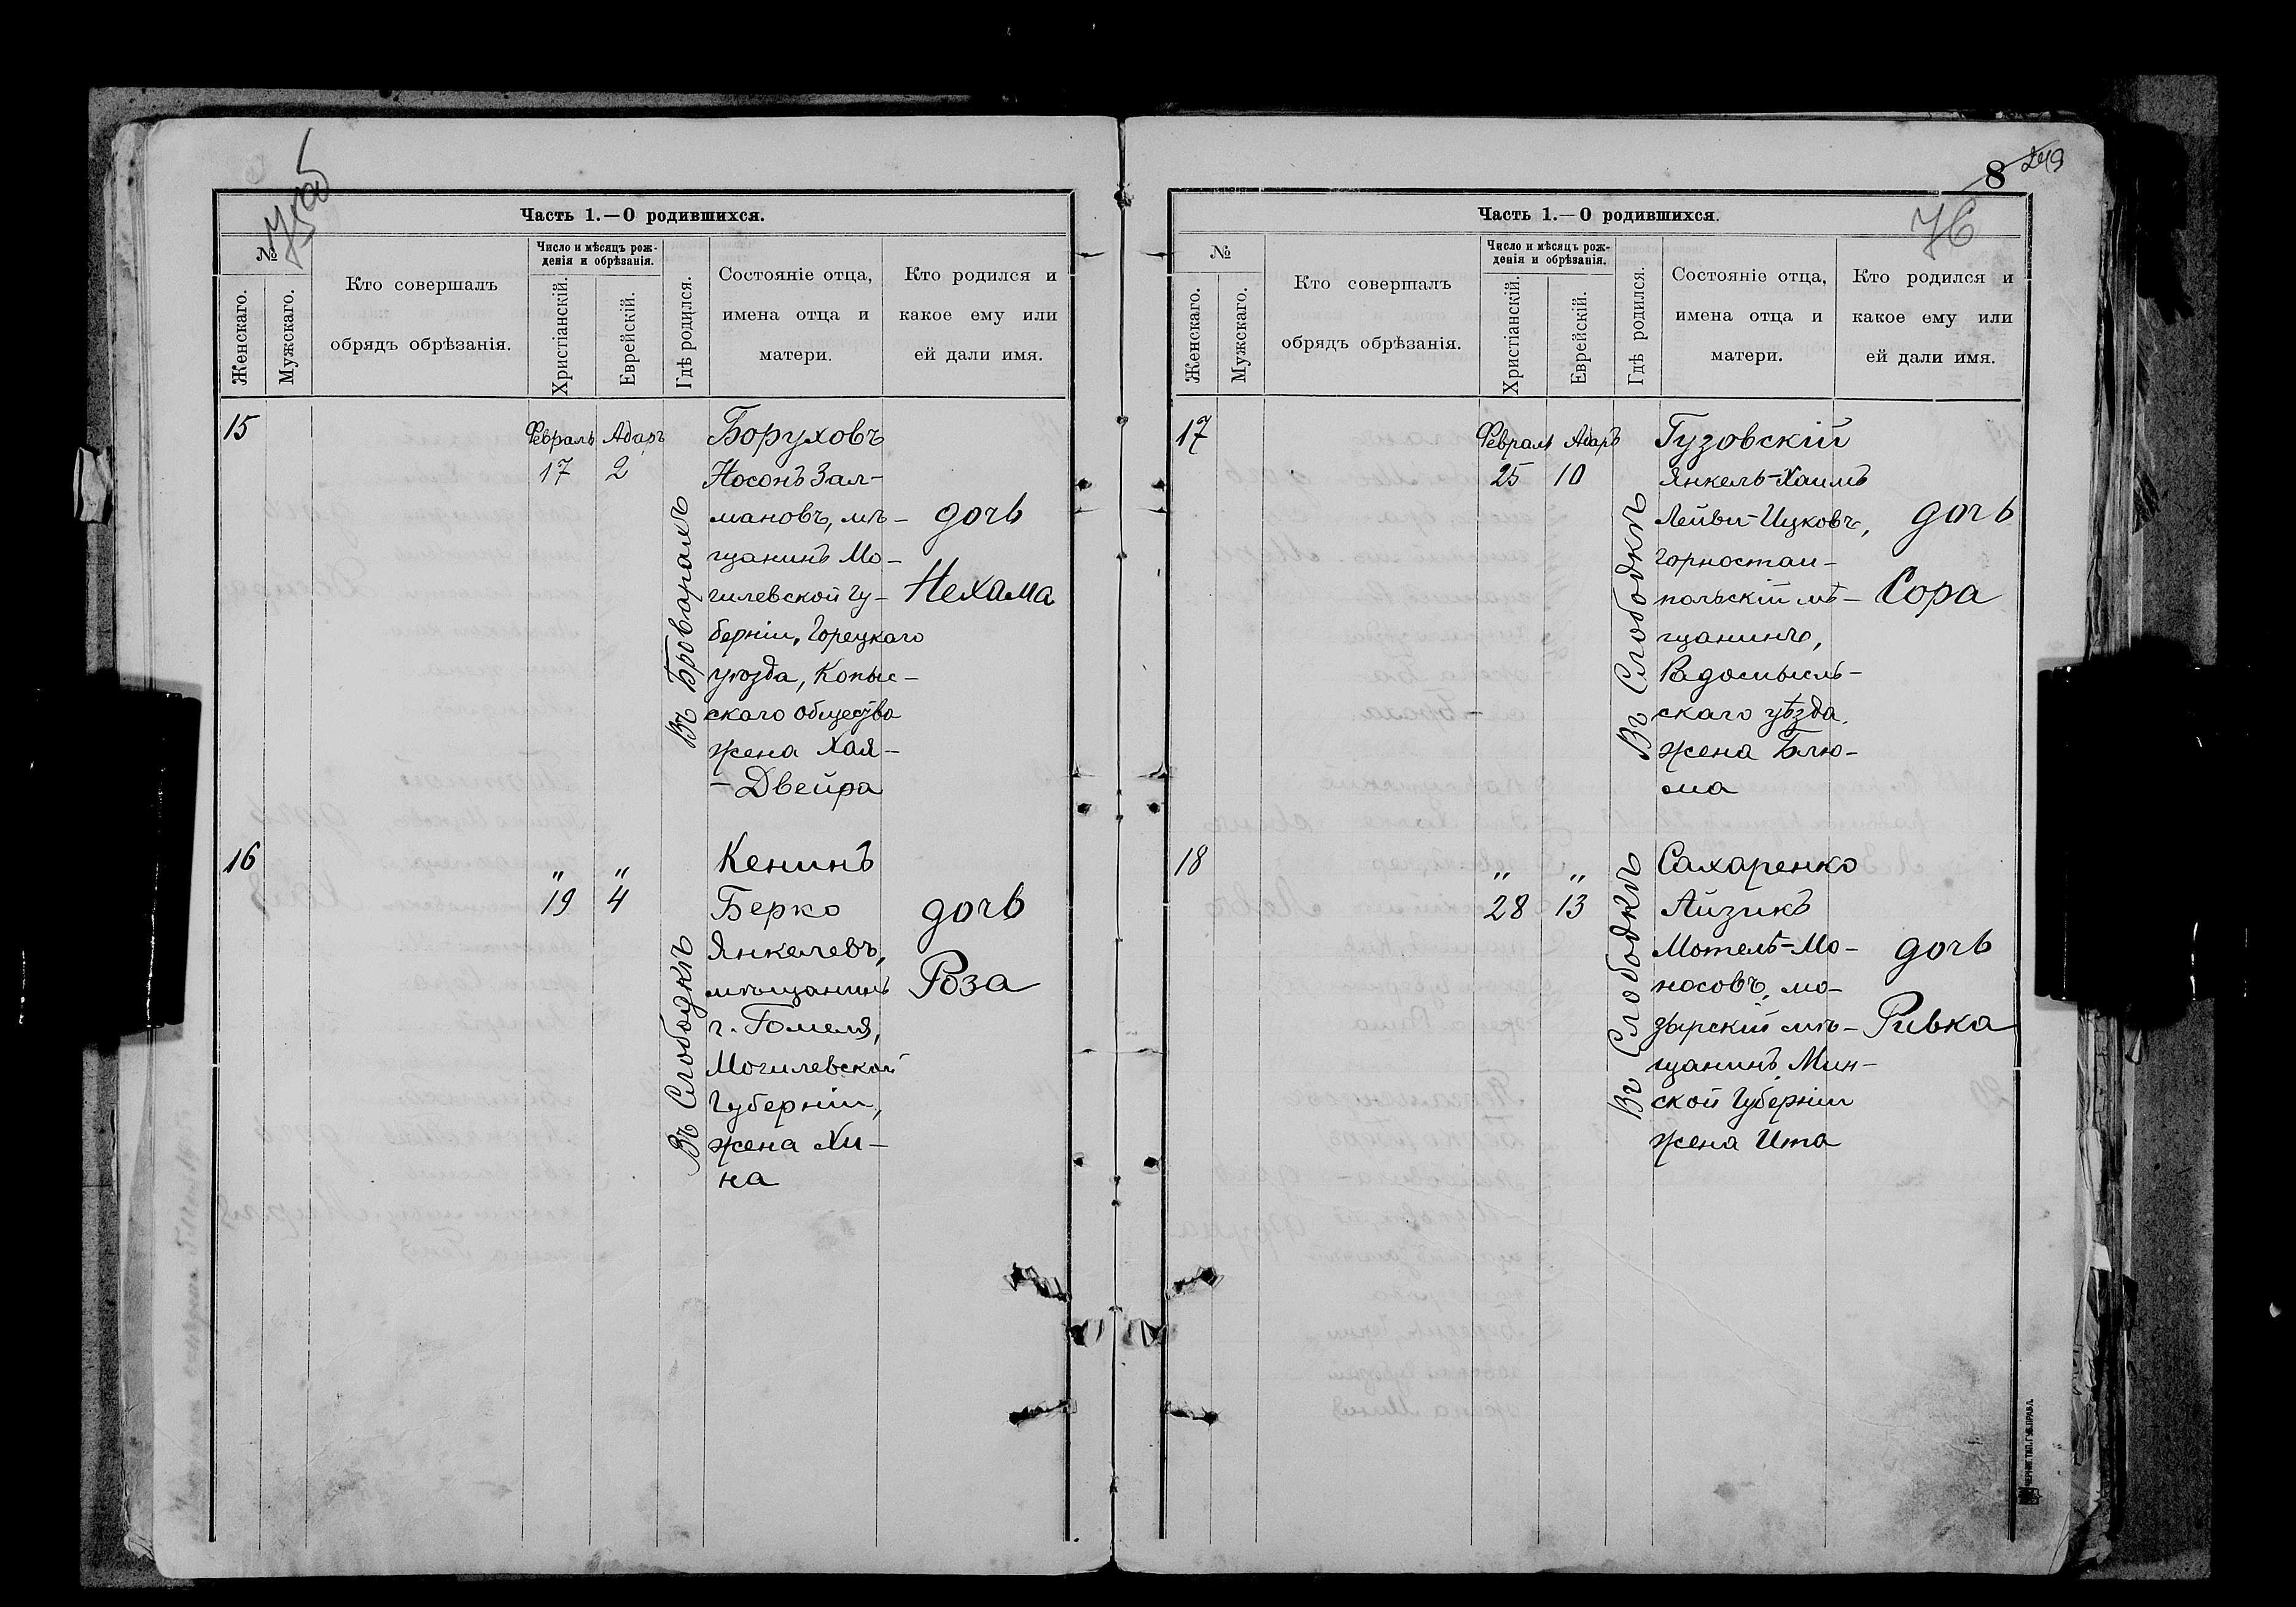 Часть 1.—О родившихся.
№
Женскаго.
Мужскаго.
Кто совершалъ
обрядъ обрѣзанія.
Число и мѣсяцъ рож-
денія и обрѣзанія.
Христіанскій.
Еврейскій.
Гдѣ родился.
Состояніе отца,
имена отца и
матери.
Кто родился и
какое ему или
ей дали имя.
15
Февраль Адаръ
17 2
Въ Броварахъ
Боруховъ
Носонъ Зал-
мановъ, мѣ-
щанинъ Мо-
гилевской гу-
берніи, Горецкаго
уѣзда, Копыс-
скаго общества
жена Хая-
-Двейра
дочь
Нехама
16
" "
19 4
Въ Слободкѣ
Кенинъ
Берко
Янкелевъ,
мѣщанинъ
г. Гомеля,
Могилевской
Губерніи,
жена Хи-
на
дочь
Роза
8 249
76
Часть 1.—О родившихся.
№
Женскаго.
Мужскаго.
Кто совершалъ
обрядъ обрѣзанія.
Число и мѣсяцъ рож-
денія и обрѣзанія.
Христіанскій.
Еврейскій.
Гдѣ родился.
Состояніе отца,
имена отца и
матери.
Кто родился и
какое ему или
ей дали имя.
17
Февраль Адаръ
25 10
Въ Слободкѣ
Гузовскій
Янкель-Хаимъ
Лейви-Ицковъ,
горностай-
польскій мѣ-
щанинъ,
Радомысль-
скаго уѣзда,
жена Блю-
ма
дочь
Сора
18
" "
28 13
Въ Слободкѣ
Сахаренко
Айзикъ
Мотель-Мо-
носовъ, мо-
зырскій мѣ-
щанинъ, Мин-
ской Губерніи
жена Ита
дочь
Ривка
ЧЕРНИГ. ТИП. ГУБ. ПРАВЛ.